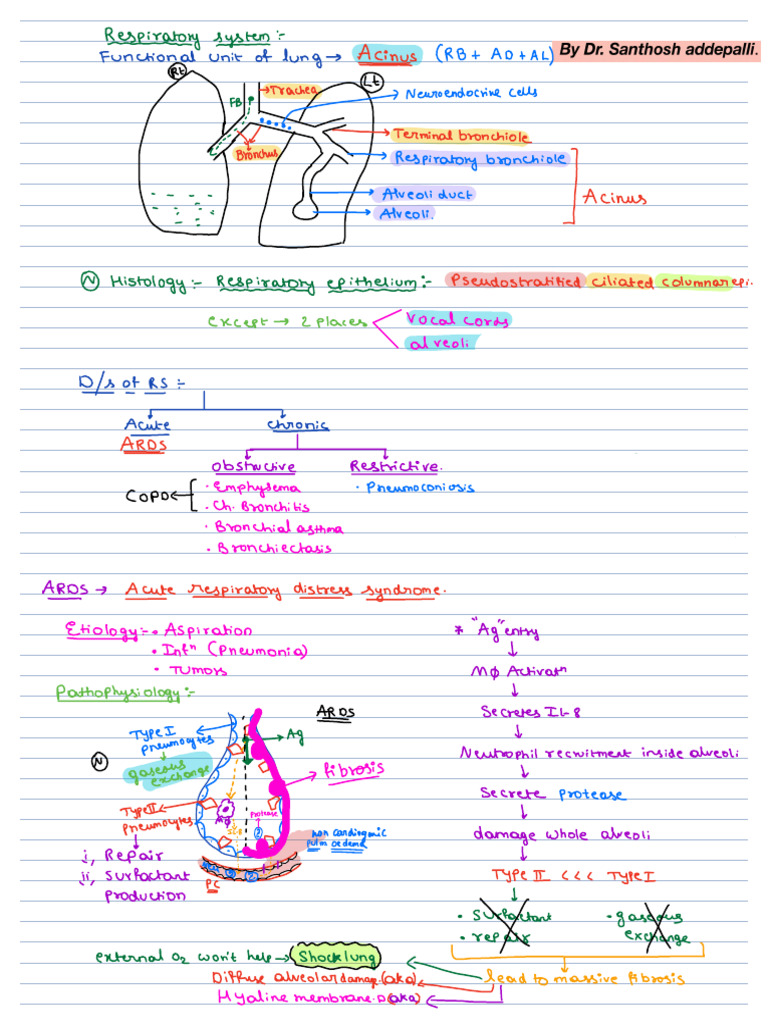 Respiratory system :-
Functional unit of lung → Acinus (RB + AD + AL) By Dr. Santhosh addepalli.
Rt
Lt
FB
Trachea
Neuroendocrine cells
Bronchus
Terminal bronchiole
Respiratory bronchiole
Acinus
Alveoli duct
Alveoli.
(N) Histology :- Respiratory epithelium :- Pseudostratified ciliated columnar epi.
except → 2 places
vocal cords
alveoli
D/s of RS :-
Acute
chronic
ARDS
obstructive
Restrictive.
COPD
• Emphysema
• Pneumoconiosis
• Ch. Bronchitis
• Bronchial asthma
• Bronchiectasis
ARDS → Acute respiratory distress syndrome.
Etiology :- • Aspiration
• Infⁿ (Pneumonia)
• Tumors
Pathophysiology :-
ARDS
TYPE I
pneumocytes
Ag
(N)
gaseous
exchange
fibrosis
TYPE II
pneumocytes
MΦ
IL-8
Protease
2
non cardiogenic
pulm oedema
i, Repair
ii, surfactant
production
PC
* "Ag" entry
MΦ Activatⁿ
Secretes IL-8
Neutrophil recruitment inside alveoli
Secrete protease
damage whole alveoli
TYPE II <<< TYPE I
• surfactant
• repair
• gaseous
exchange
lead to massive fibrosis
external O2 won't help → Shock lung
Diffuse alveolar damag. (aka)
Hyaline membrane. D (aka)